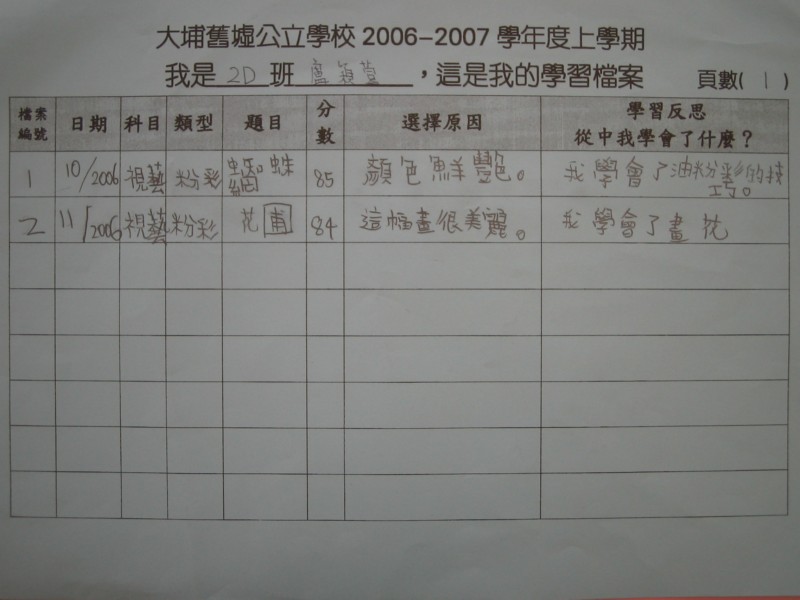 大埔舊墟公立學校 2006-2007 學年度上學期
我是 2D 班 盧穎萱 ，這是我的學習檔案 頁數( 1 )
檔案編號 日期 科目 類型 題目 分數 選擇原因 學習反思 從中我學會了什麼？
1 10/2006 視藝 粉彩 蜘蛛網 85 顏色鮮艷。 我學會了油粉彩的技巧。
2 11/2006 視藝 粉彩 花圃 84 這幅畫很美麗。 我學會了畫花